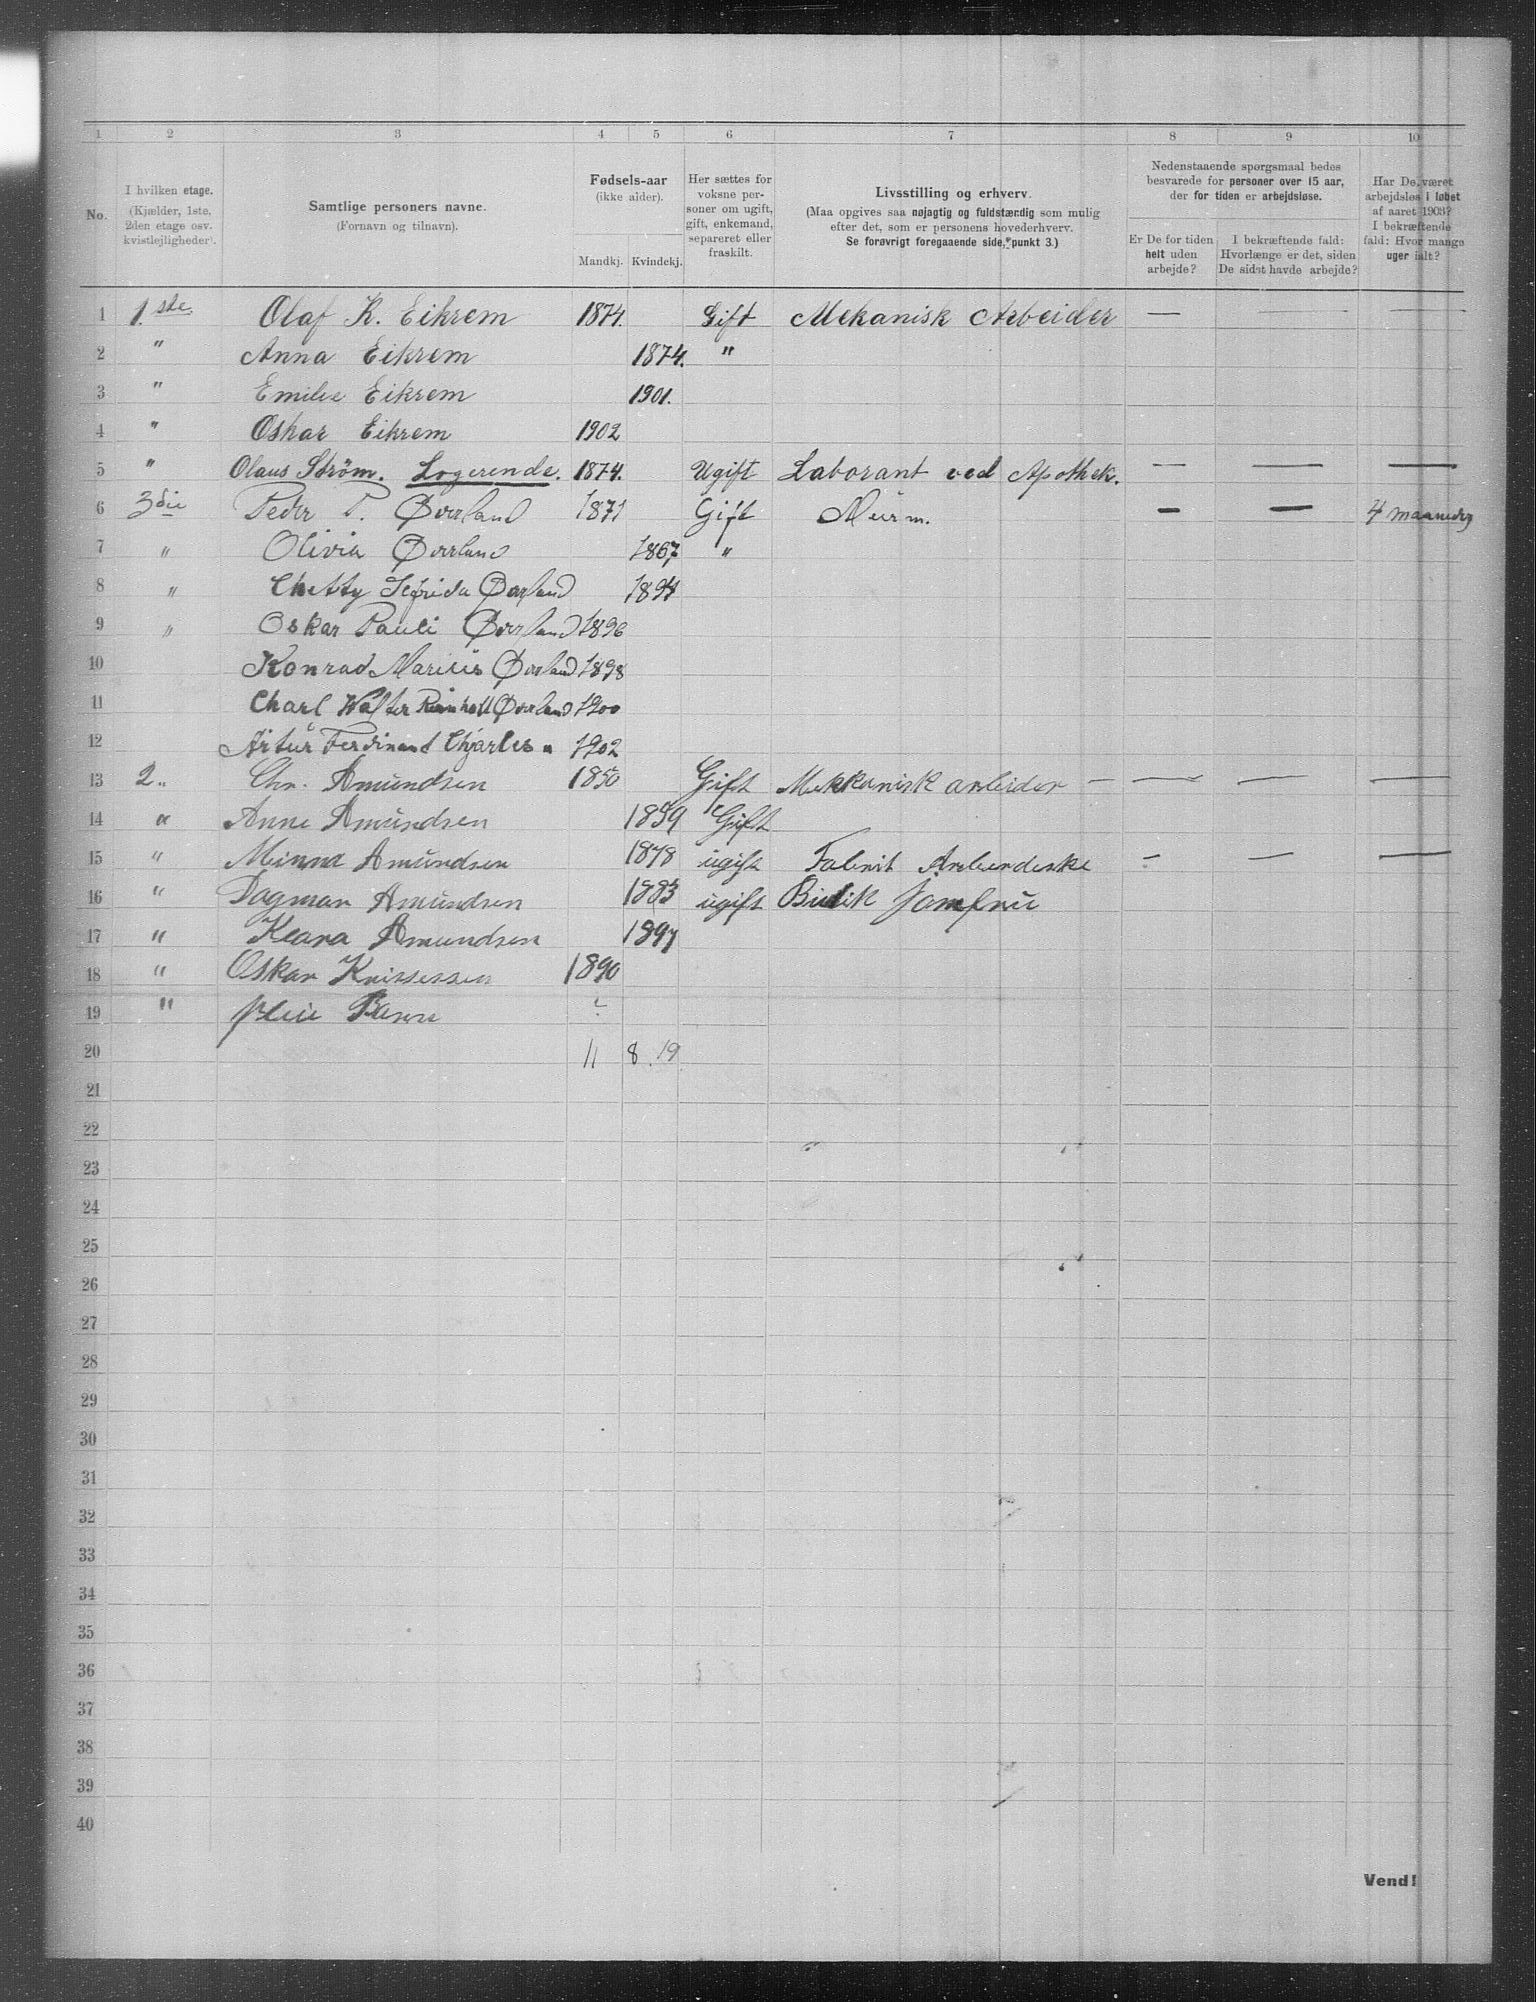 1 2 3 4 5 6 7 8 9 10
No.
I hvilken etage.
(Kjælder, 1ste,
2den etage osv.
kvistlejligheder).
Samtlige personers navne.
(Fornavn og tilnavn).
Fødsels-aar
(ikke alder).
Mandkj. Kvindekj.
Her sættes for
voksne per-
soner om ugift,
gift, enkemand,
separeret eller
fraskilt.
Livsstilling og erhverv.
(Maa opgives saa nøjagtig og fuldstændig som mulig
efter det, som er personens hovederhverv.
Se forøvrigt foregaaende side, punkt 3.)
Nedenstaaende spørgsmaal bedes
besvarede for personer over 15 aar,
der for tiden er arbejdsløse.
Er De for tiden
helt uden
arbejde?
I bekræftende fald:
Hvorlænge er det, siden
De sidst havde arbejde?
Har De været
arbejdsløs i løbet
af aaret 1903?
I bekræftende
fald: Hvor mange
uger ialt?
1 1.ste. Olaf K. Eikrem 1874. Gift Mekanisk Arbeider — — —
2 " Anna Eikrem 1874. "
3 " Emilie Eikrem 1901.
4 " Oskar Eikrem 1902
5 " Olaus Ström. Logerende. 1874. Ugift Laborant ved Apothek. — — —
6 3die Peder P. Øverland 1871 Gift Murm. — — 4 maaneder
7 " Olivia Øverland 1867 "
8 " Øverland 1894
9 " Oskar Pauli Øverland 1896
10 Konrad Marius Øverland 1898
11 Charl Walter Reinholt Øverland 1900
12 Artur Ferdinand Chjarles " 1902
13 2 " Chr. Amundsen 1850 Gift Mekkanisk arbeider — — — —
14 " Anne Amundsen 1859 Gift
15 " Minna Amundsen 1878 ugift Fabrik Arbeideske — — —
16 " Dagmar Amundsen 1883 ugift Butik Jomfru
17 " Klara Amundsen 1897
18 " Oskar 1890
19 "
20 11 8 . 19
21
22
23
24
25
26
27
28
29
30
31
32
33
34
35
36
37
38
39
40
Vend!